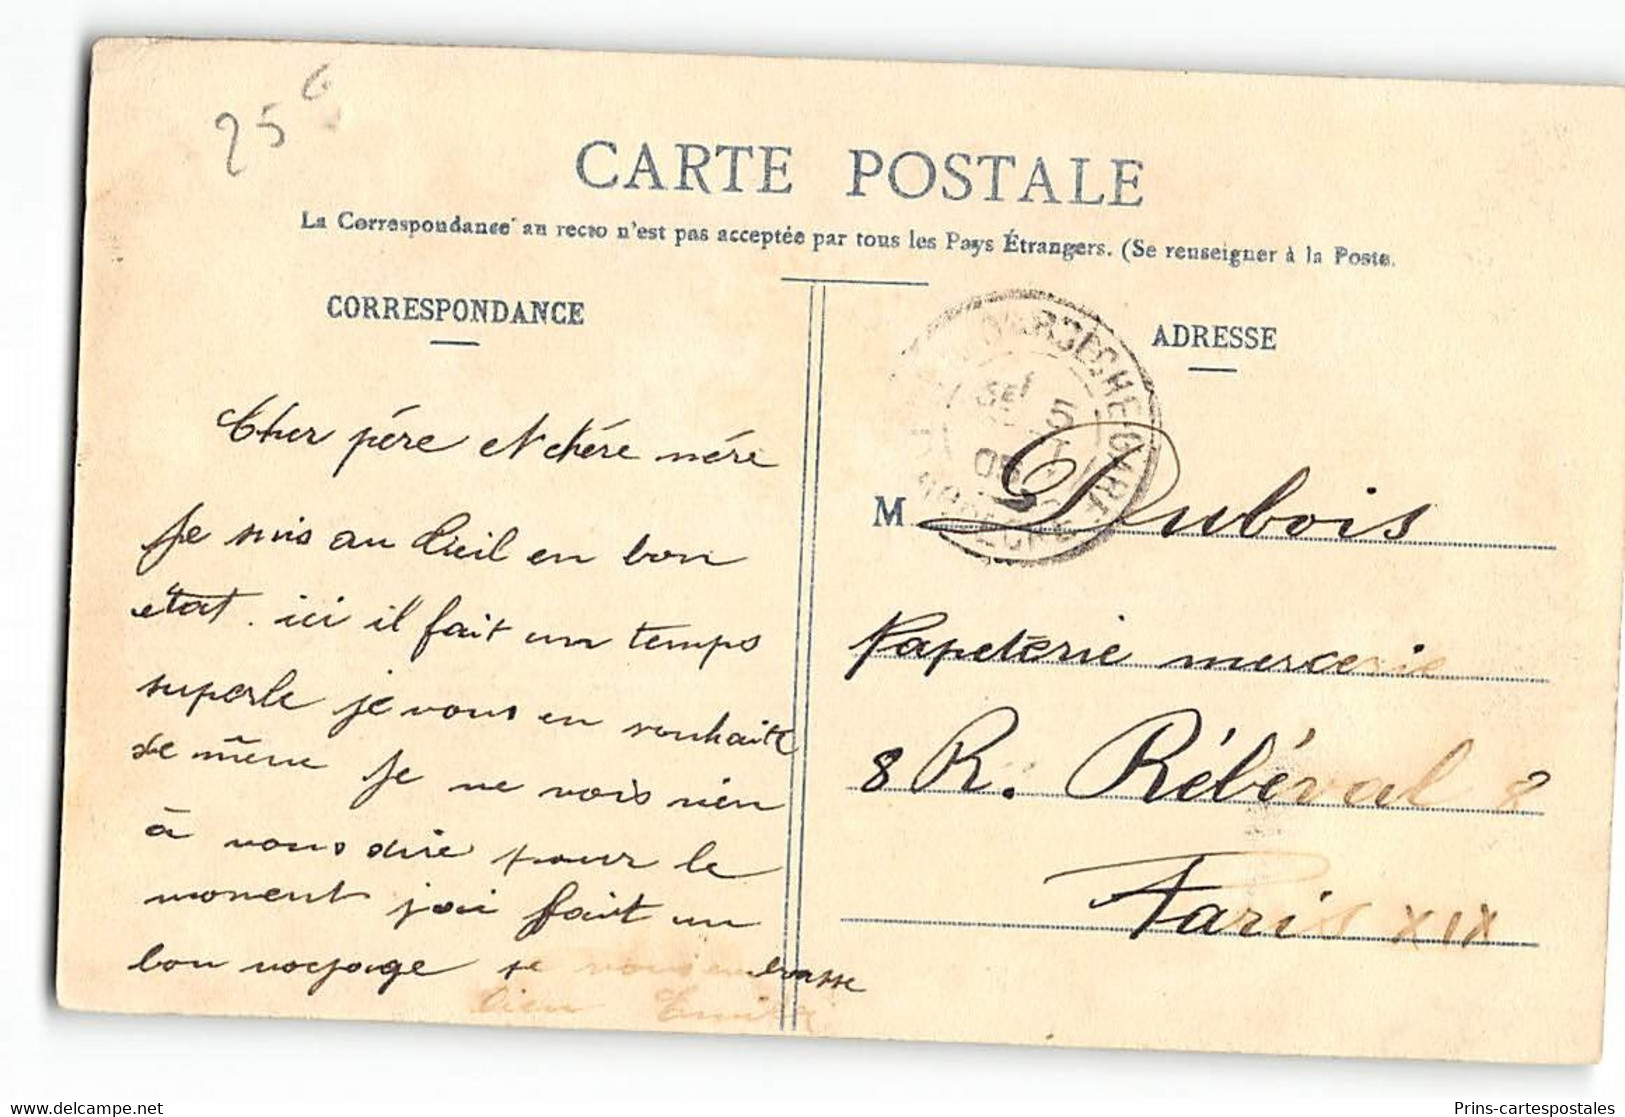 25
CARTE POSTALE
La Correspondance au recto n'est pas acceptée par tous les Pays Étrangers. (Se renseigner à la Poste.
CORRESPONDANCE
ADRESSE
Cher pére et chére mére
je suis au Creil en bon
etat. ici il fait un temps
superle je vous en souhaite
de même je ne vois rien
à vous dire pour le
moment jai fait un
bon voyage je vous embrasse
bien
M Dubois
Papeterie mercerie
8 R. Rébéval 8
Paris XIX
www.delcampe.net
Prins-cartespostales